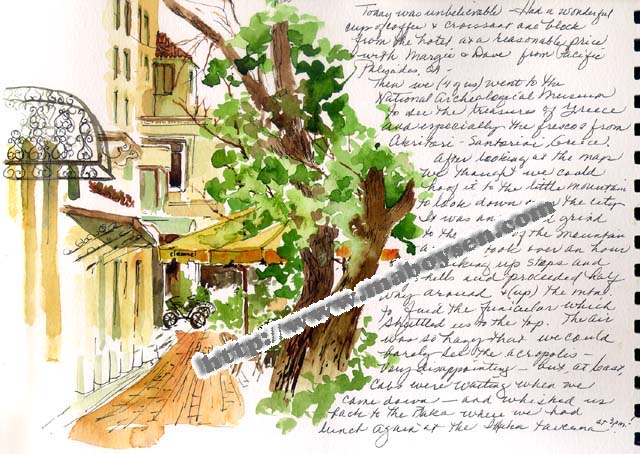 Today was unbelievable - Had a wonderful
cup of coffee & croissant one block
from the hotel at a reasonable price
with Margie & Dave from Pacific
Palisades, CA -
Then we (4 of us) went to the
National Archeological Museum
to see the treasures of Greece
and especially the frescos from
Akriteri - Santorini Greece.
After looking at the map
we thought we could
hoof it to the little mountain
to look down the city
It was an grind
to the the mountain
took over an hour
hiking up steps and
hills and proceeded half
way around & (up) the mont.
to find the funicular which
shuttled us to the top. The air
was so hazy that we could
barely see the acropolis -
very disappointing - but, at least
Cabs were waiting when we
came down - and whisked us
back to the Plaka where we had
lunch again at the taverna at 3pm!
http://www.imaboysen.com